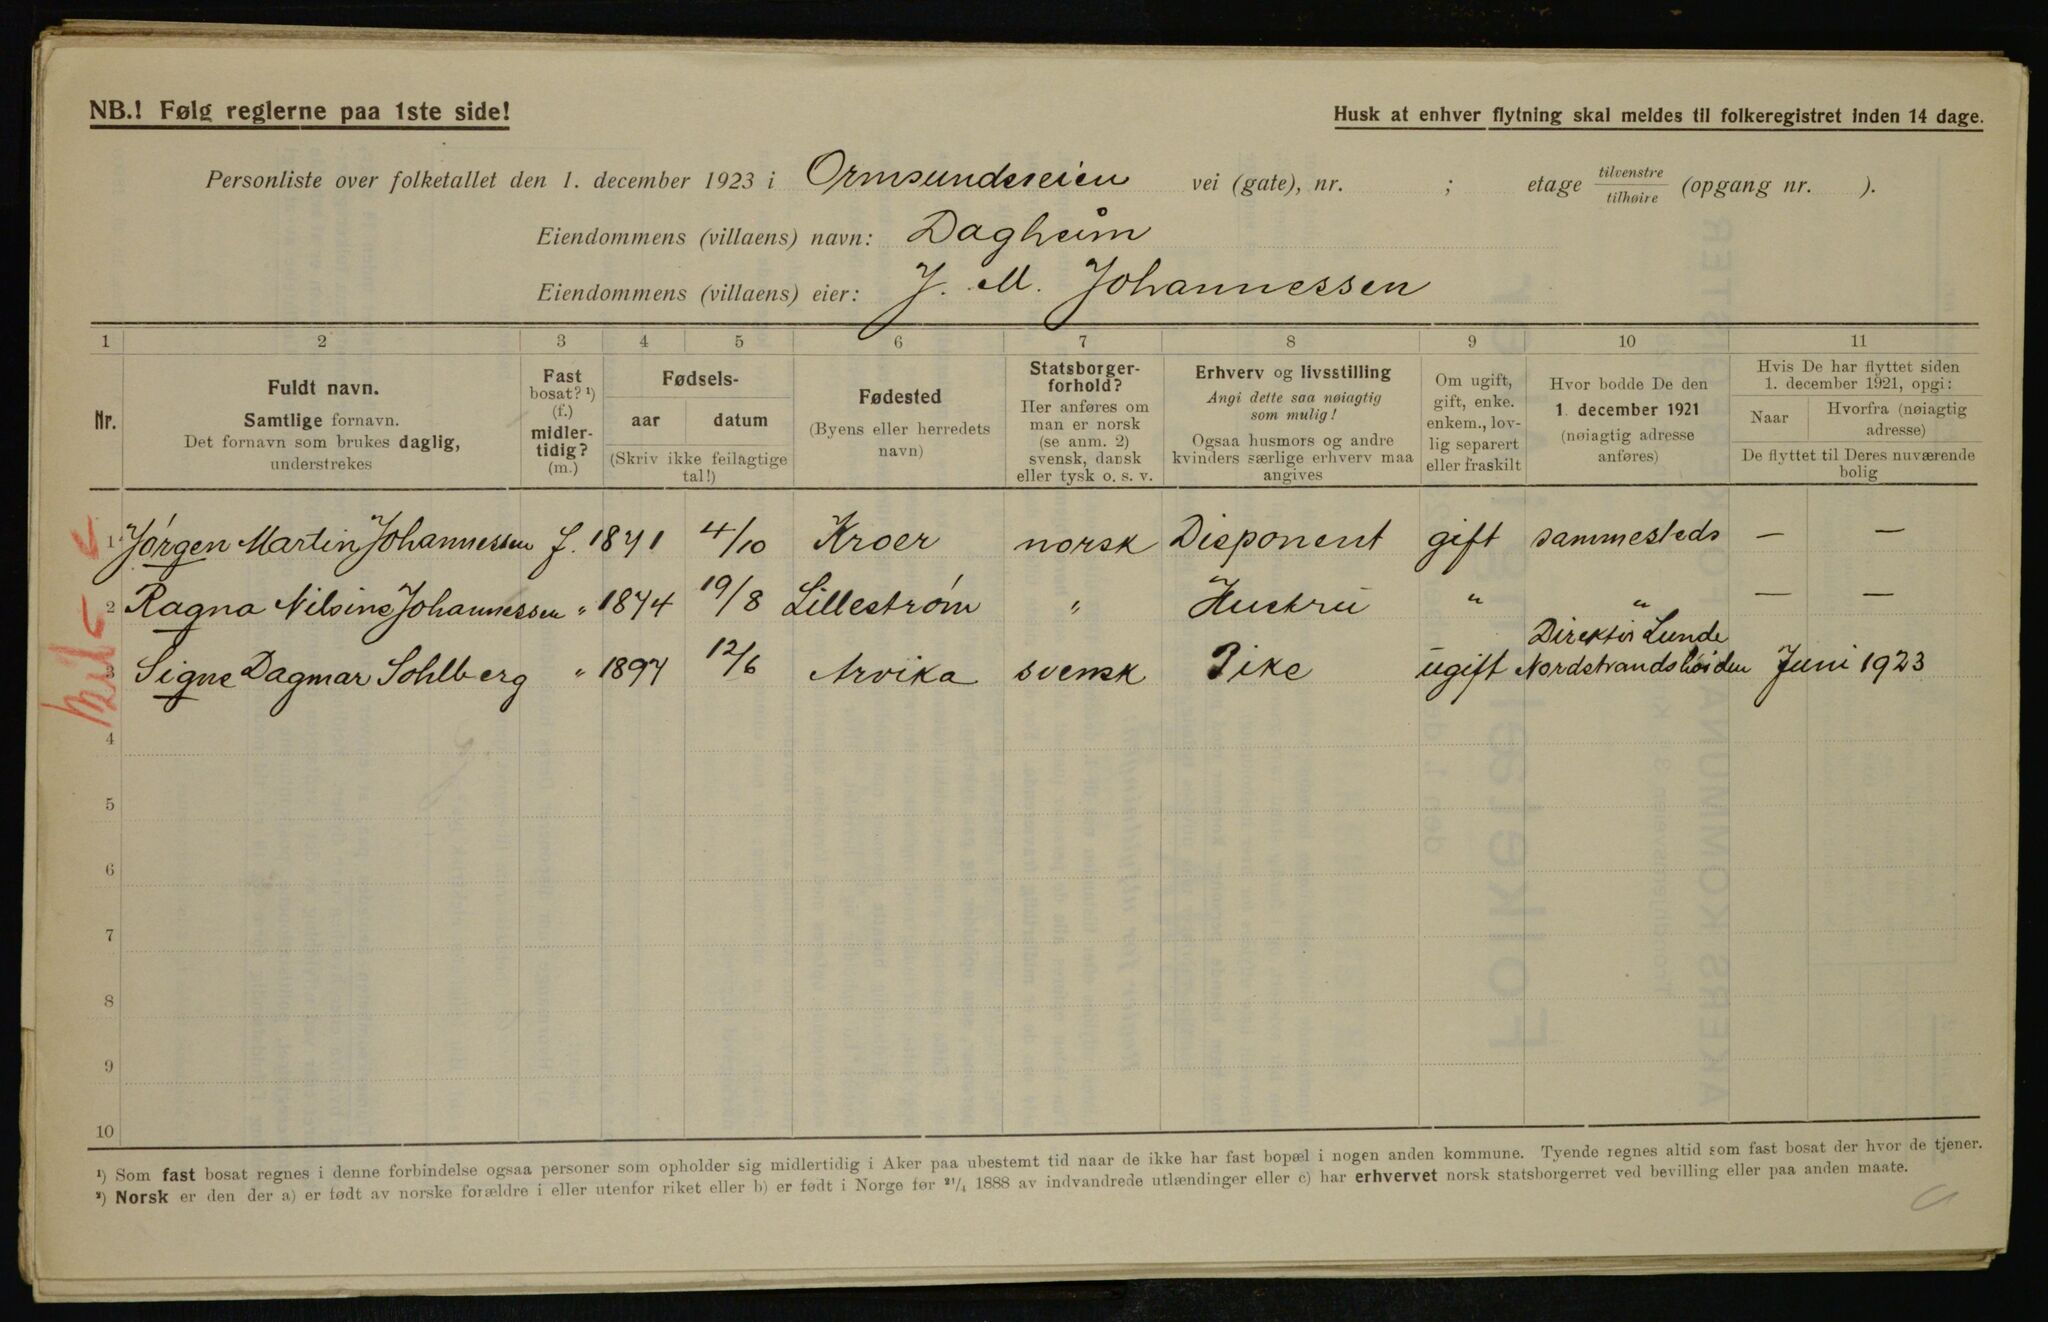 NB.! Følg reglerne paa 1ste side!
Husk at enhver flytning skal meldes til folkeregistret inden 14 dage.
Personliste over folketallet den 1. december 1923 i Ormsundsveien vei (gate), nr. ; etage tilvenstre tilhøire (opgang nr. ).
Eiendommens (villaens) navn: Dagheim
Eiendommens (villaens) eier: J. M. Johannessen
1 2 3 4 5 6 7 8 9 10 11
Nr.
Fuldt navn.
Samtlige fornavn.
Det fornavn som brukes daglig,
understrekes
Fast
bosat? ¹)
(f.)
midler-
tidig?
(m.)
Fødsels-
aar datum
(Skriv ikke feilagtige
tal!)
Fødested
(Byens eller herredets
navn)
Statsborger-
forhold?
Her anføres om
man er norsk
(se anm. 2)
svensk, dansk
eller tysk o. s. v.
Erhverv og livsstilling
Angi dette saa nøiagtig
som mulig!
Ogsaa husmors og andre
kvinders særlige erhverv maa
angives
Om ugift,
gift, enke.
enkem., lov-
lig separert
eller fraskilt
Hvor bodde De den
1. december 1921
(nøiagtig adresse
anføres)
Hvis De har flyttet siden
1. december 1921, opgi:
Naar
Hvorfra (nøiagtig
adresse)
De flyttet til Deres nuværende
bolig
1 Jørgen Martin Johannessen f. 1871 4/10 Kroer norsk Disponent gift sammesteds — —
2 Ragna Nilsine Johannessen " 1874 19/8 Lillestrøm " Hustru " " — —
3 Signe Dagmar Sohlberg " 1897 12/6 Arvika svensk Pike ugift Direktør Lunde Nordstrandshøiden Juni 1923
4
5
6
7
8
9
10
¹) Som fast bosat regnes i denne forbindelse ogsaa personer som opholder sig midlertidig i Aker paa ubestemt tid naar de ikke har fast bopæl i nogen anden kommune. Tyende regnes altid som fast bosat der hvor de tjener.
²) Norsk er den der a) er født av norske forældre i eller utenfor riket eller b) er født i Norge før ²¹/₄ 1888 av indvandrede utlændinger eller c) har erhvervet norsk statsborgerret ved bevilling eller paa anden maate.